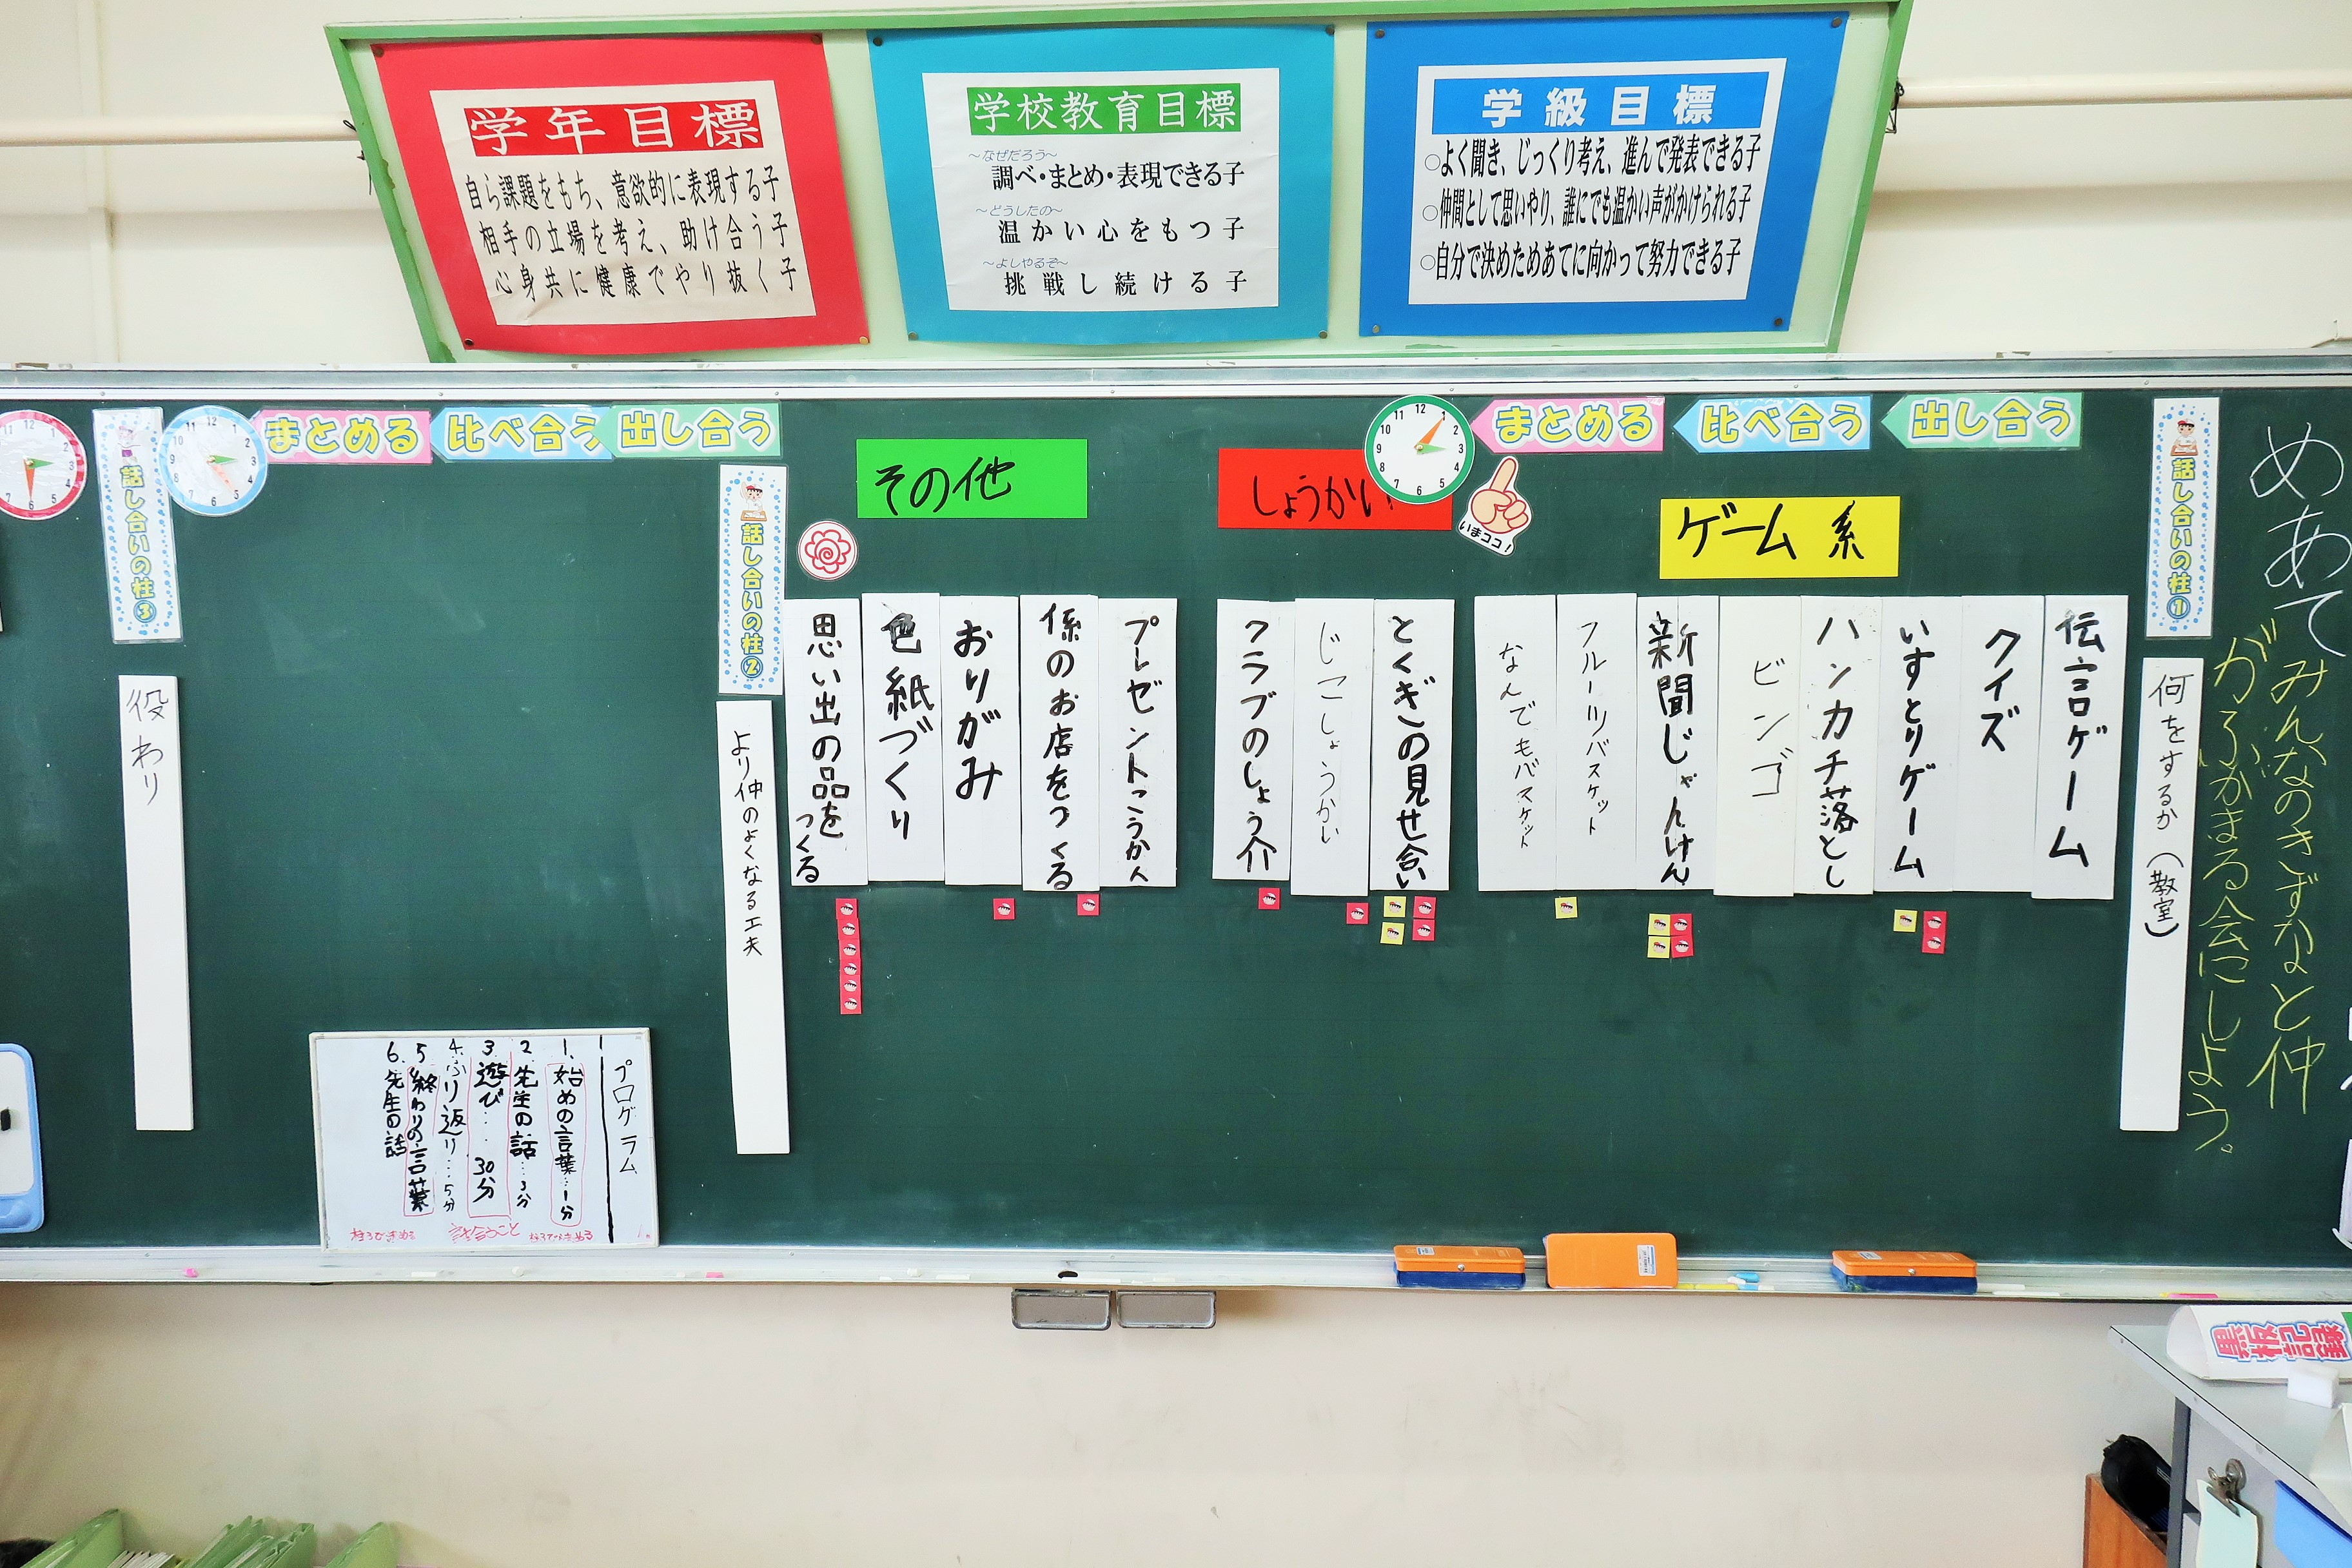 学年目標
自ら課題をもち、意欲的に表現する子
相手の立場を考え、助け合う子
心身共に健康でやり抜く子
学校教育目標
～なぜだろう～
調べ・まとめ・表現できる子
～どうしたの～
温かい心をもつ子
～よしやるぞ～
挑戦し続ける子
学級目標
○よく聞き、じっくり考え、進んで発表できる子
○仲間として思いやり、誰にでも温かい声がかけられる子
○自分で決めためあてに向かって努力できる子
めあて
みんなのきずなと仲
がふかまる会にしよう。
話し合いの柱①
何をするか（教室）
出し合う
比べ合う
まとめる
いまココ！
ゲーム系
伝言ゲーム
クイズ
いすとりゲーム
ハンカチ落とし
ビンゴ
新聞じゃんけん
フルーツバスケット
なんでもバスケット
しょうかい
とくぎの見せ合い
じこしょうかい
クラブのしょう介
その他
プレゼントこうかん
係のお店をつくる
おりがみ
色紙づくり
思い出の品をつくる
話し合いの柱②
より仲のよくなる工夫
出し合う
比べ合う
まとめる
話し合いの柱③
役わり
プログラム
1.始めの言葉…1分
2.先生の話…3分
3.遊び…30分
4.ふり返り…5分
5.終わりの言葉
6.先生の話
話合うこと
黒板記録